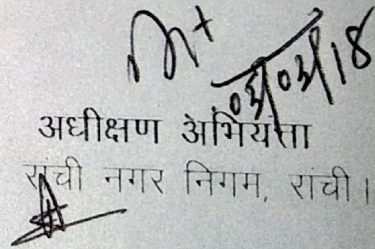 03/03/18
अधीक्षण अभियन्ता
रांची नगर निगम, रांची।